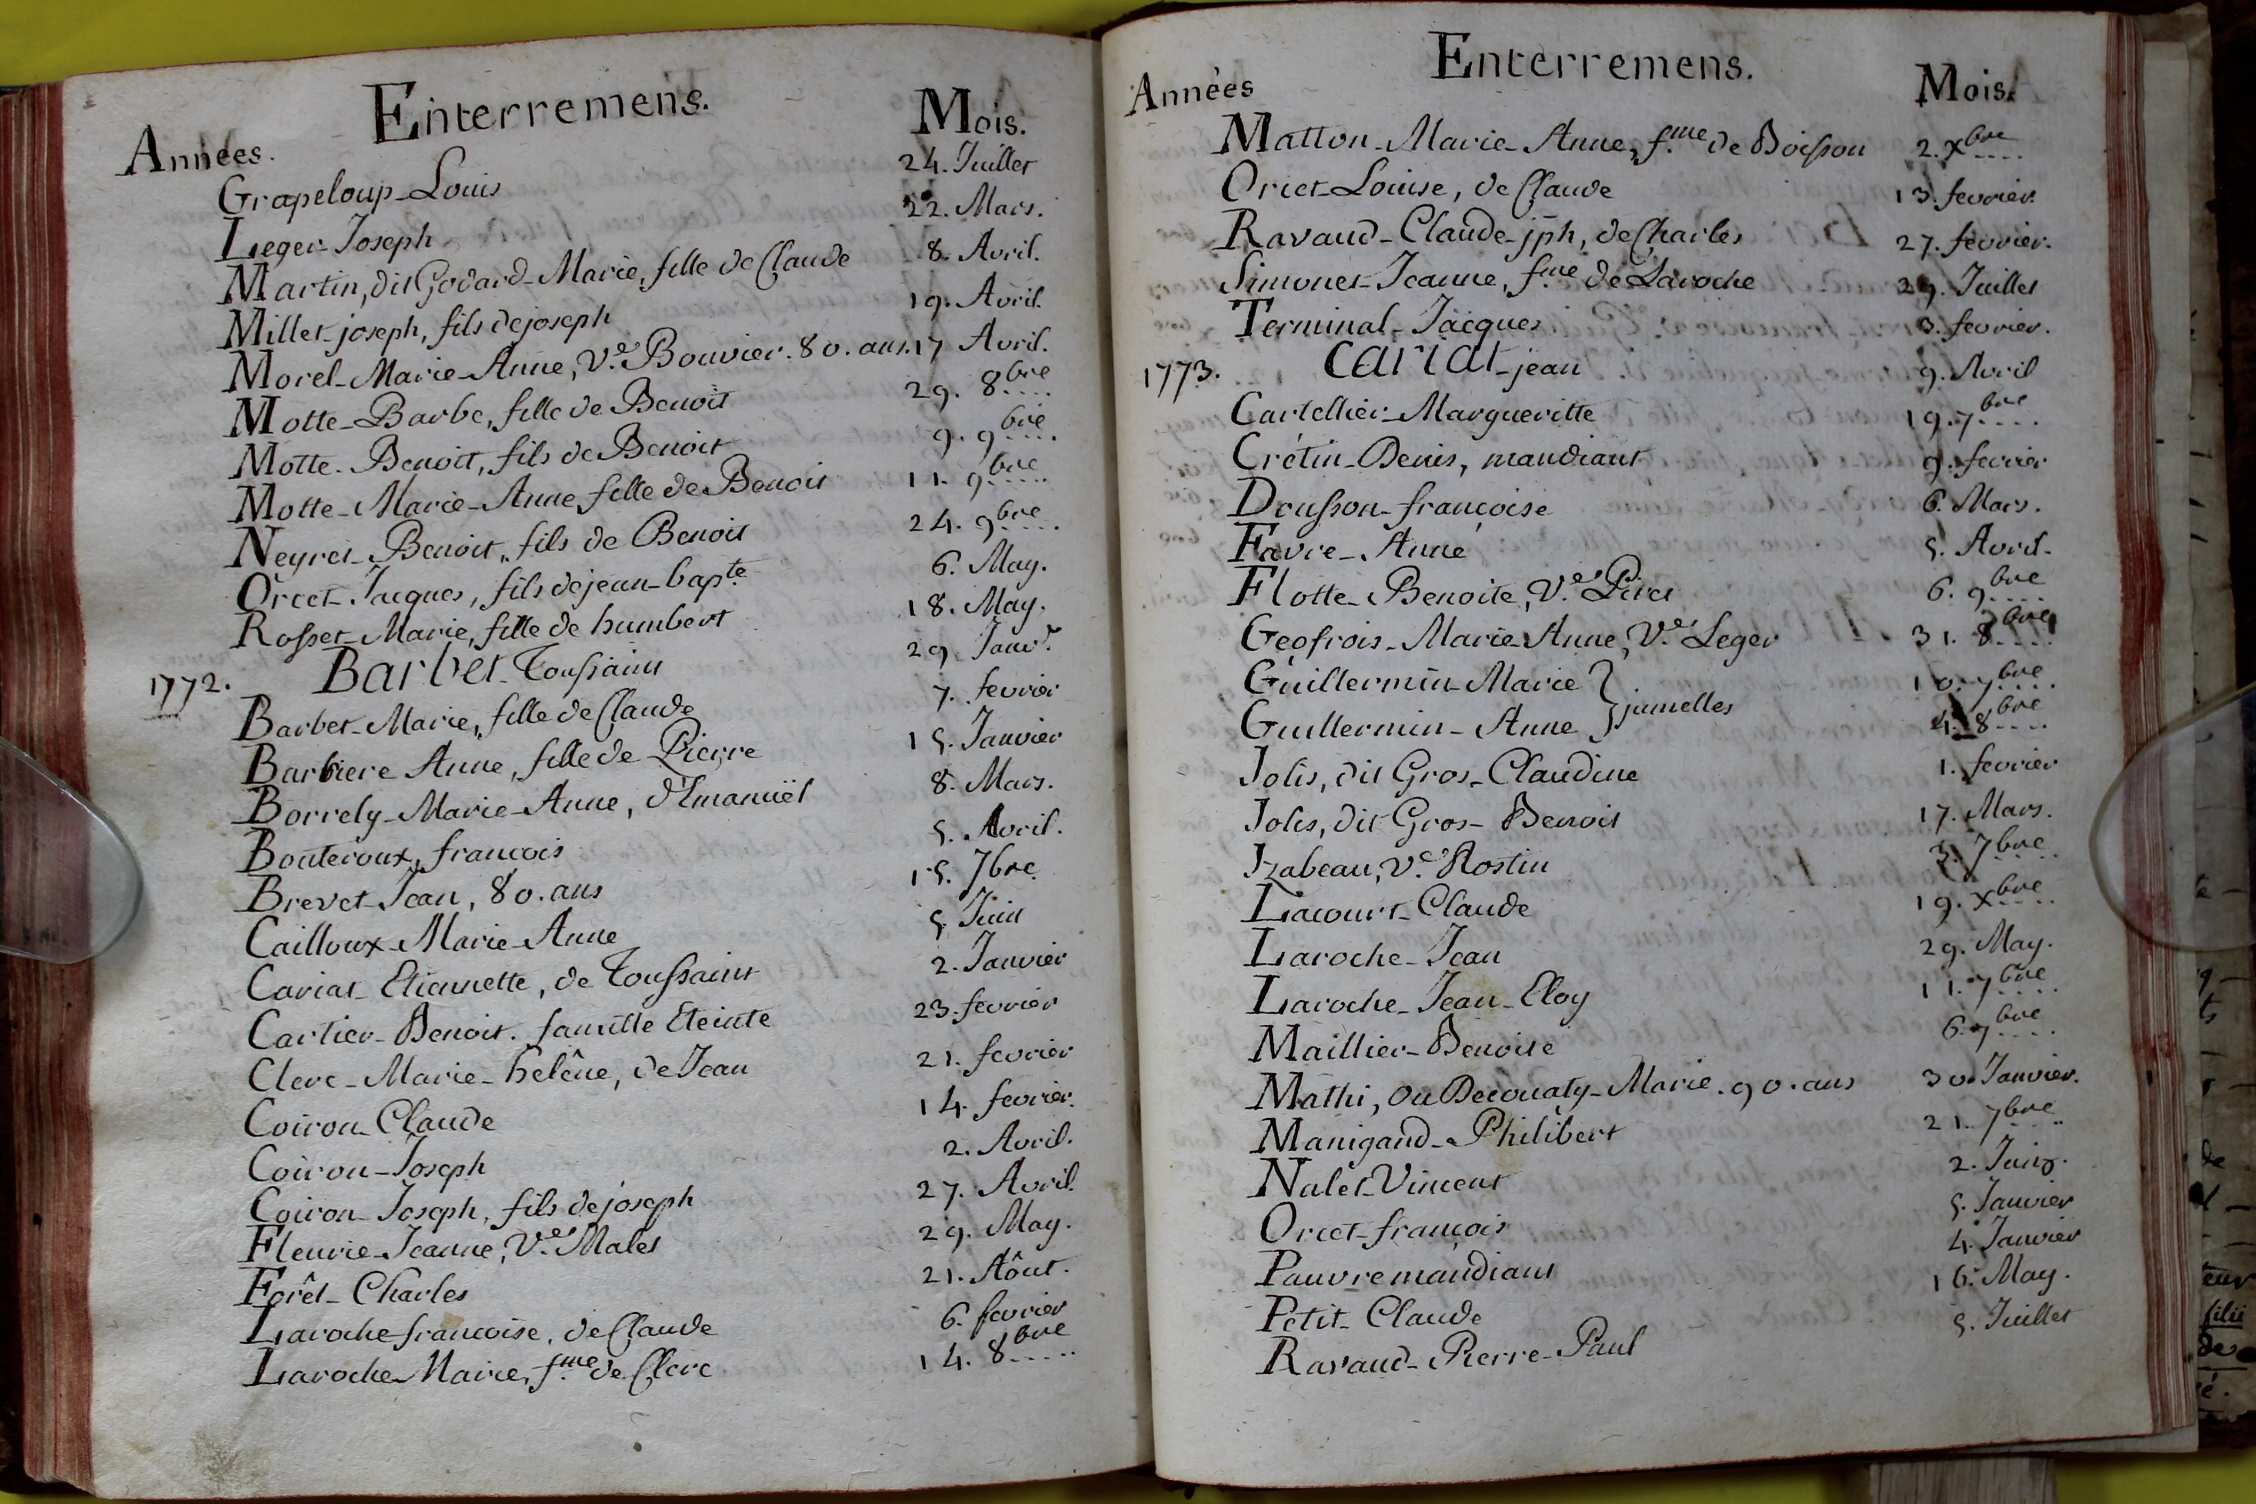 Enterremens.
Années. Mois.
Grapeloup-Louis 24. Juillet
Leger-Joseph 22. Mars.
Martin, dit Godard-Marie, fille de Claude 8. Avril.
Millet-joseph, fils de joseph 19. Avril.
Morel-Marie-Anne, Ve. Bouvier. 80. ans. 17 Avril.
Motte-Barbe, fille de Benoit 29. 8bre
Motte-Benoit, fils de Benoit 9. 9bre
Motte-Marie-Anne fille de Benoit 11. 9bre
Neyret-Benoit, fils de Benoit 24. 9bre
Orcet-Jacques, fils de jean-bapte 6. May.
Rosset-Marie, fille de humbert 18. May.
1772. Barbet-Toussaint 29 Janvr.
Barbet-Marie, fille de Claude 7. fevrier
Barbiere Anne, fille de Pierre 15. Janvier
Borrely-Marie-Anne, d'Emanuël 8. Mars.
Bouteroux, francois 5. Avril.
Brevet-Jean, 80. ans 15. 7bre
Cailloux-Marie-Anne 5. Juin
Cariat-Etiennette, de Toussaint 2. Janvier
Cartier-Benoit. famille Eteinte 23. fevrier
Clerc-Marie-helêne, de Jean 21. fevrier
Coiron-Claude 14. fevrier.
Coiron-Joseph 2. Avril.
Coiron-Joseph, fils de joseph 27. Avril
Fleurie-Jeanne, Ve. Malet 29. May.
Forêt-Charles 21. Aôut.
Laroche francoise, de Claude 6. fevrier
Laroche Marie, fme de Clerc 14. 8bre
Enterremens.
Années Mois.
Matton-Marie-Anne, fme de Boisson 2. Xbre
Orcet-Louise, de Claude 13. fevrier.
Ravaud-Claude-jph, de Charles 27. fevrier.
Simonet-Jeanne, fme de Laroche 29. Juillet
Terminal-Jacques 3. fevrier.
1773. Cariat-jean 9. Avril
Cartellier-Margueritte 19. 7bre
Crétin-Denis, mandiant 9. fevrier
Dousson-françoise 6. Mars.
Favre-Anne 5. Avril.
Flotte-Benoite, Ve. Piret 6. 9bre
Geofrois-Marie-Anne, Ve. Leger 31. 8bre
Guillermin-Marie } 10. 7bre
jumelles
Guillermin-Anne } 4. 8bre
Jolis, dit Gros-Claudine 1. fevrier
Jolis, dit Gros-Benoit 17. Mars.
Izabeau, Ve. Rostin 3. 7bre
Lacourt-Claude 19. Xbre
Laroche-Jean 29. May.
Laroche-Jean-Eloy 11. 7bre
Maillier-Benoite 6. 7bre
Mathi, ou Decouaty-Marie. 90. ans 30. Janvier.
Manigand-Philibert 21. 7bre
Nalet-Vincent 2. Juin.
Orcet-françois 5. Janvier
Pauvre mandiant 4. Janvier
Petit-Claude 16. May.
Ravaud-Pierre-Paul 5. Juillet